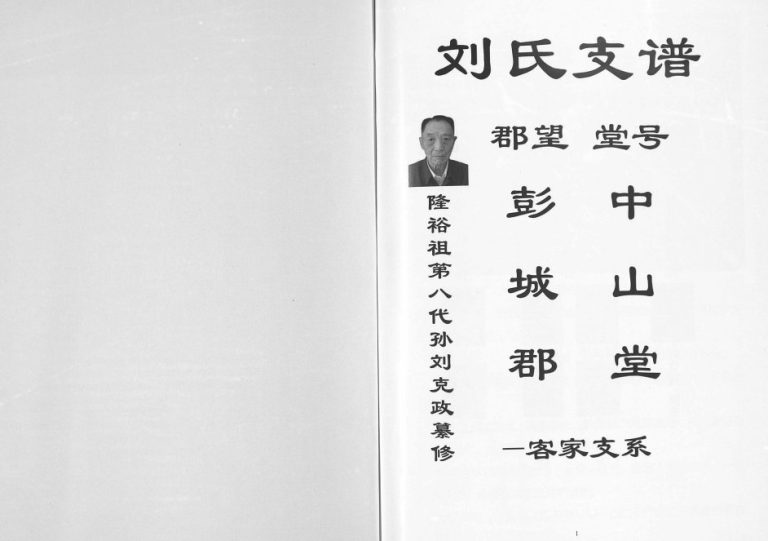 刘氏支谱
郡望 堂号
彭城郡
中山堂
隆裕祖第八代孙刘克政纂修
—客家支系
1